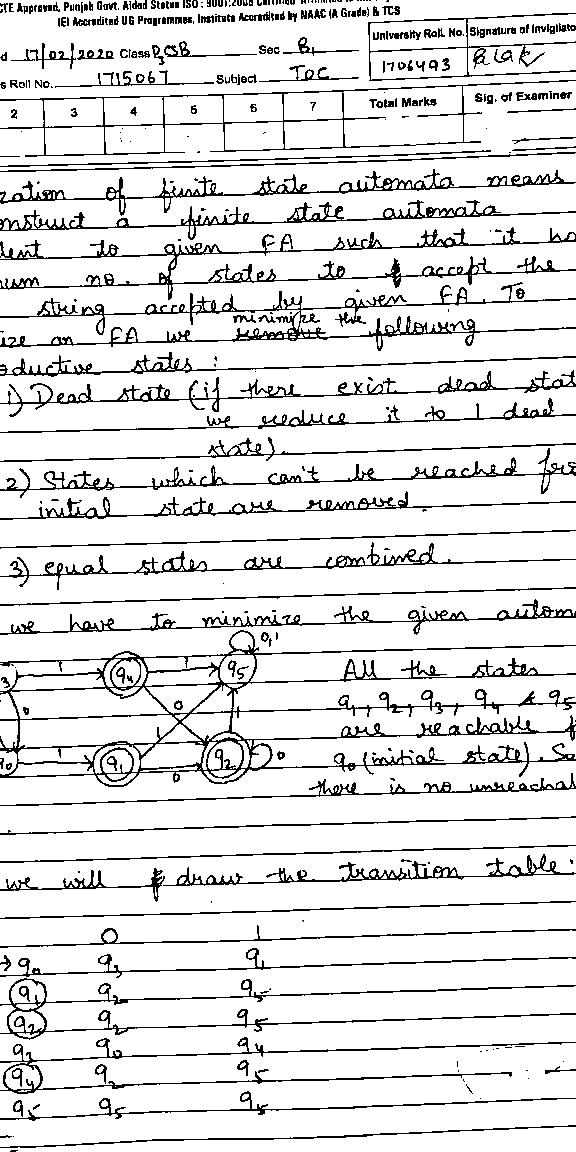 CTE Approved, Punjab Govt. Aided Status ISO : 9001:2008
IEI Accredited UG Programmes, Institute Accredited by NAAC (A Grade) & TCS
d 17/02/2020 Class D3CSB Sec B1
University Roll. No. Signature of Invigilato
s Roll No. 1715067 Subject TOC
1706493
2 3 4 5 6 7 Total Marks Sig. of Examiner
zation of finite state automata means
onstruct a finite state automata
lent to given FA such that it ha
num no. of states to accept the
string accepted by given FA. To
ize an FA we minimize the following
oductive states :
1) Dead state (if there exist dead stat
we reduce it to 1 dead
state).
2) States which can't be reached fro
initial state are removed.
3) equal states are combined.
we have to minimize the given autom
0,1
3 1 q4 1 q5
0 0 1 1
q0 1 q1 0 q2 0
All the states
q1, q2, q3, q4 & q5
are reachable f
q0 (initial state). So
there is no unreachab
we will draw the transition table:
0 1
→ q0 q3 q1
q1 q2 q5
q2 q2 q5
q3 q0 q4
q4 q2 q5
q5 q5 q5